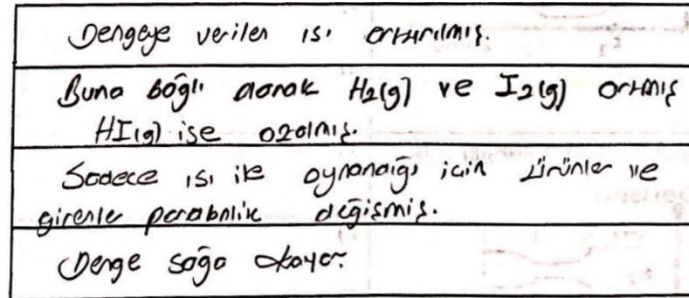 Dengeye verilen ısı arttırılmış.
Buna bağlı olarak H2(g) ve I2(g) artmış
HI(g) ise azalmış.
Sadece ısı ile oynandığı için ürünler ve
girenler parabolik değişmiş.
Denge sağa kayar.